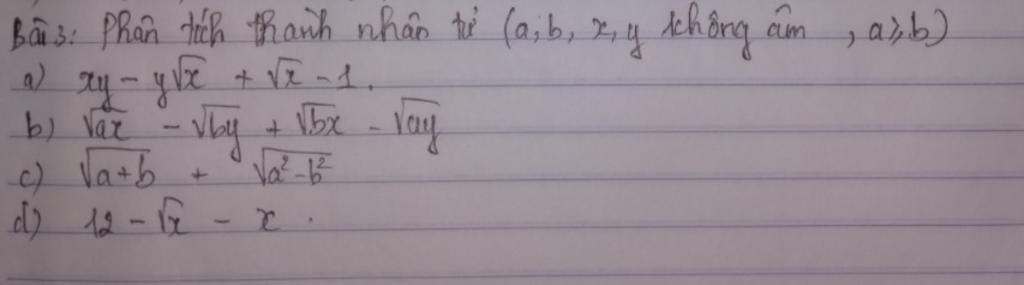 Bài 3: Phân tích thành nhân tử (a, b, x, y không âm, a ≥ b)
a) xy - y√x + √x - 1.
b) √ax - √by + √bx - √ay
c) √a+b + √a²-b²
d) 12 - √x - x.